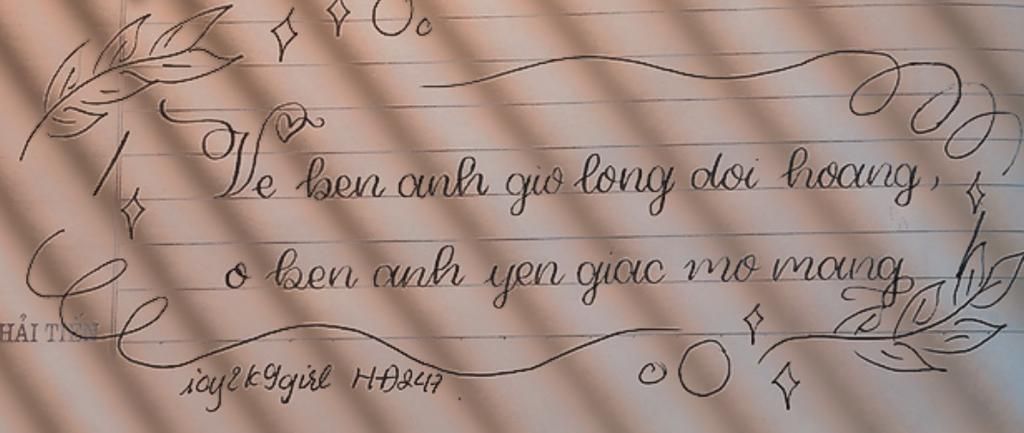 Ve ben anh gio long doi hoang,
o ben anh yen giac mo mang
HẢI TIẾN
icy2k9girl HĐ247